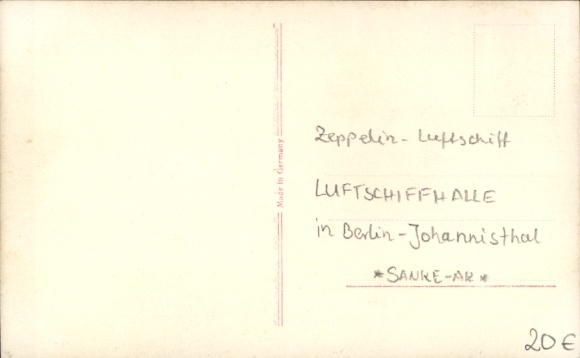 Made in Germany
Zeppelin-Luftschiff
LUFTSCHIFFHALLE
in Berlin-Johannisthal
*SANKE-AK*
20€